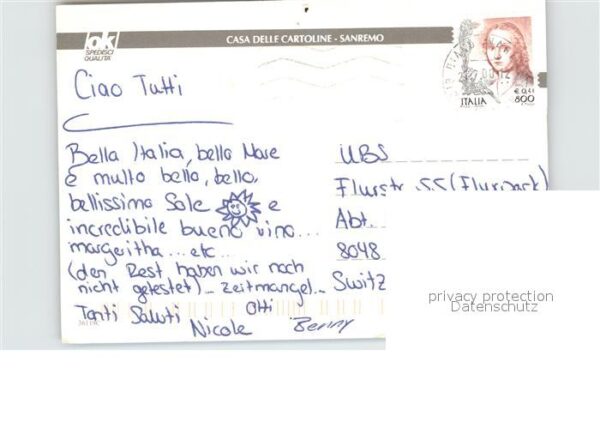 ok
SPEDISCI
QUALITÀ
CASA DELLE CARTOLINE - SANREMO
ITALIA
€ 0,41
800
Ciao Tutti
Bella Italia, bello Mare
e multo bello, bello,
bellissimo Sole e
incredibile bueno vino...
margeritha... etc...
(den Rest haben wir noch
nicht getestet)... Zeitmangel...
Tanti Saluti Otti
Nicole Benny
UBS
Flurstr. 55 (Flurpark)
Abt.
8048
Switz
privacy protection
Datenschutz